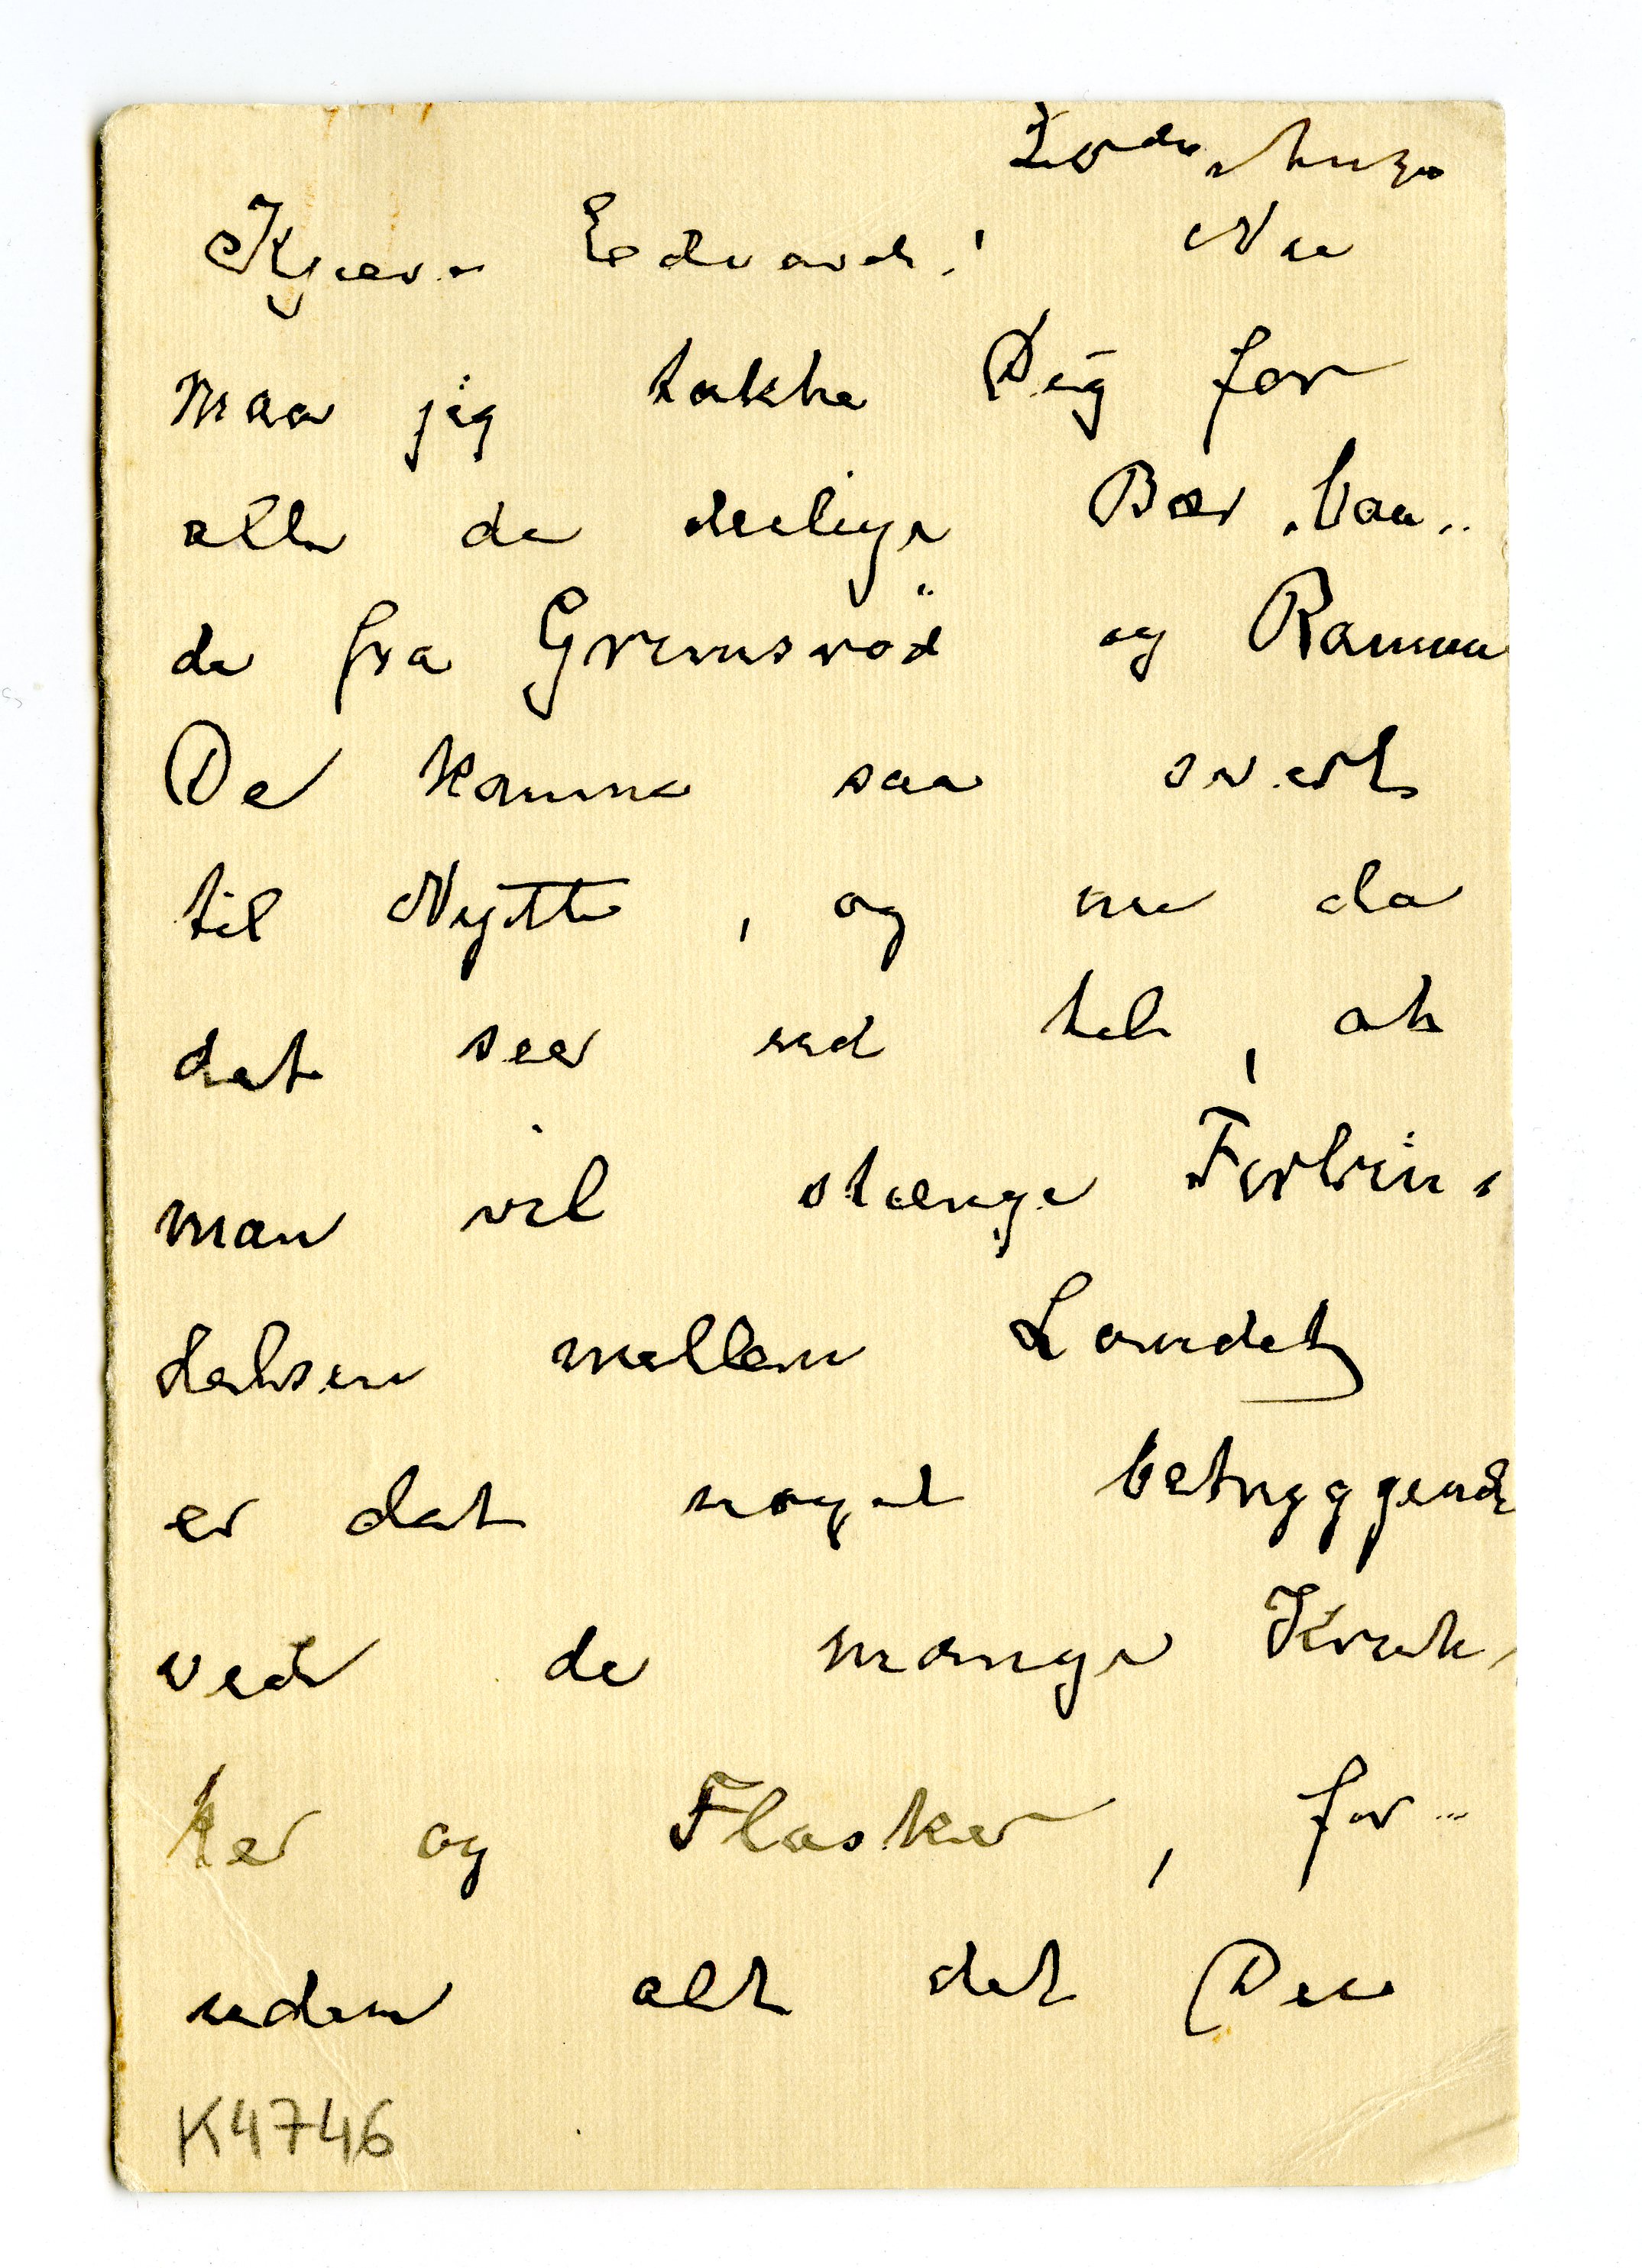 Kjære Edvard! Nu
maa jeg takke Dig for
alle de deilige Bær baa-
de fra Grimsröd og Ramme
De komme saa svært
til Nytte, og nu da
det seer ud til, at
man vil stænge Forbin-
delsen mellem Landet
er det noget betryggende
ved de mange Kruk-
ker og Flasker, for-
uden alt det Du
K4746